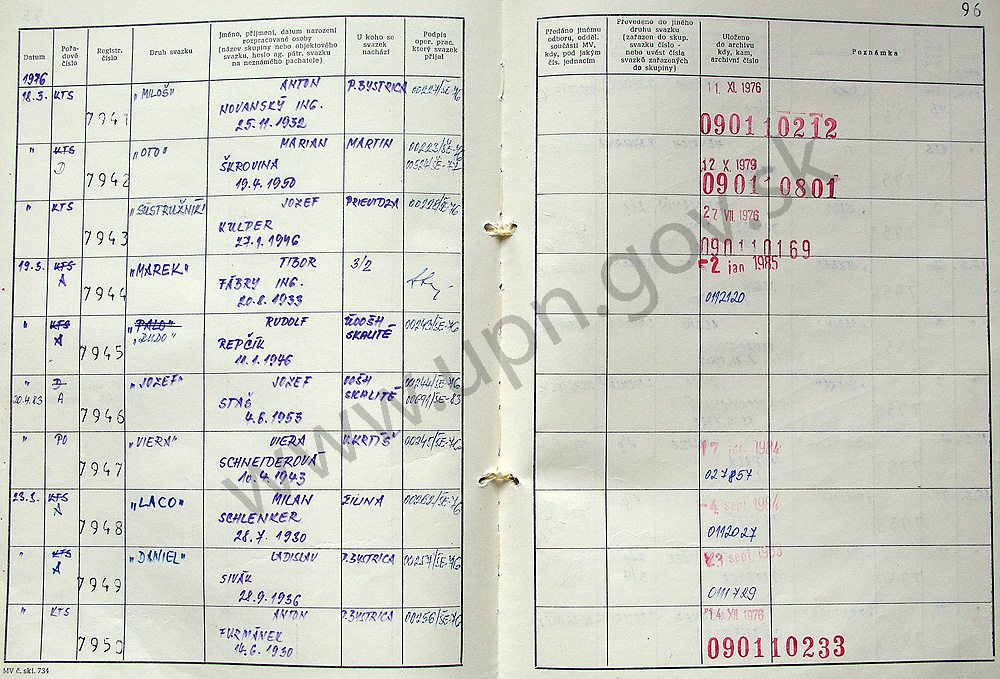 96
Datum
Pořa-
dové
číslo
Registr.
číslo
Druh svazku
Jméno, příjmení, datum narození
rozpracované osoby
(název skupiny nebo objektového
svazku, heslo ag. pátr. svazku
na neznámého pachatele)
U koho se
svazek
nachází
Podpis
oper. prac.
který svazek
přijal
Předáno jinému
odboru, odděl.
součásti MV,
kdy, pod jakým
čís. jednacím
Převedeno do jiného
druhu svazku
(zařazen do skup.
svazku číslo -
nebo uvést čísla
svazků zařazených
do skupiny)
Uloženo
do archivu
kdy, kam,
archivní číslo
Poznámka
1976
18.3. KTS 7941 „MILOŠ" ANTON P.BYSTRICA 00227/ŠE-76 11 XI. 1976
NOVANSKÝ ING.
25.11.1932
090110212
" KTS 7942 „OTO" MARIAN MARTIN 00223/ŠE-76 12 X. 1979
D ŠKROVINA
19.4.1950
090110801
" KTS 7943 „SÚSTRUŽNÍK" JOZEF PRIEVIDZA 00225/ŠE-76 27 VII. 1976
KULPER
27.1.1946
090110169
19.3. KTS 7944 „MAREK" TIBOR 3/2 -2 jan 1985
A FÁBRY ING.
20.8.1933
0112120
" KTS 7945 „PALO" RUDOLF ÚOOŠH SKALITÉ 00243/ŠE-76
A „DUDO" REPČÍK
11.1.1946
" D 7946 „JOZEF" JOZEF OOŠH SKALITÉ 00244/ŠE-76
20.4.83 A STAŠ 00691/ŠE-83
4.6.1953
" PO 7947 „VIERA" VIERA V.KRTÍŠ 00245/ŠE-76 1984
SCHNEIDEROVÁ
10.4.1943
027857
23.3. KTS 7948 „LACO" MILAN ŽILINA 00262/ŠE-76 -4 sept 1984
SCHLENKER
28.7.1930
0112027
" KTS 7949 „DANIEL" LADISLAV P.BYSTRICA 00257/ŠE-76 23 sept 1983
A SIVÁK
28.9.1936
0111729
" KTS 7950 ANTON P.BYSTRICA 00256/ŠE-76 14. XII. 1976
FURMÁNEK
14.6.1930
090110233
MV č. skl. 734
www.upn.gov.sk